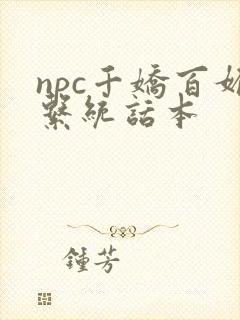 npc千嬌百媚
繫統話本
鍾芳